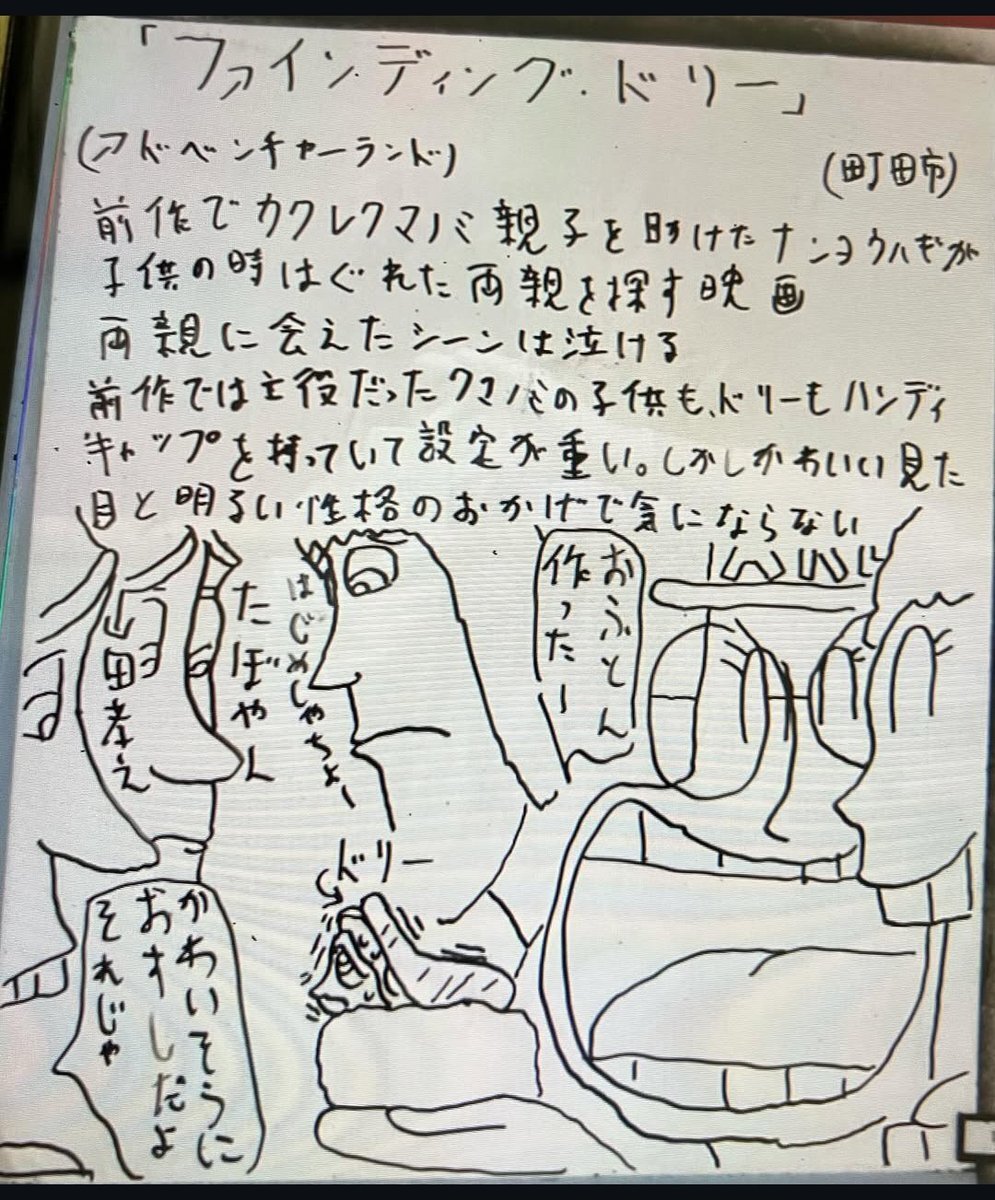 「ファインディング・ドリー」
(アドベンチャーランド)
(町田市)
前作でカクレクマノミ親子を助けたナンヨウハギが
子供の時はぐれた両親を探す映画
両親に会えたシーンは泣ける
前作では主役だったクマノミの子供も、ドリーもハンディ
キャップを持っていて設定が重い。しかしかわいい見た
目と明るい性格のおかげで気にならない
おふとん
作ったー
はじめしゃちょー
たぼやん
山田孝之
ドリー
かわいそうに
おすしだよ
それじゃ